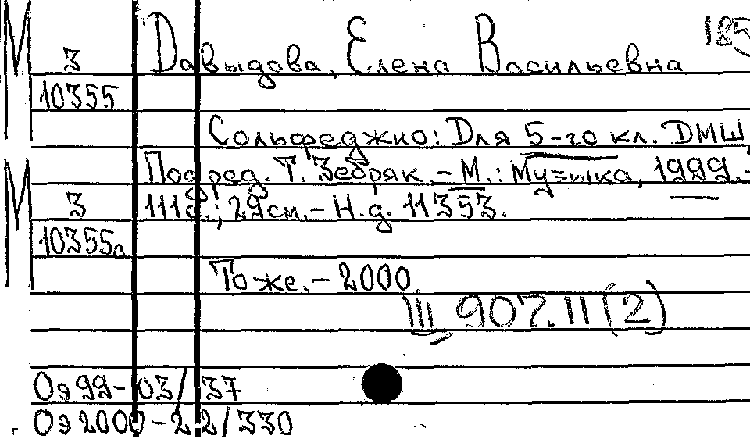 185
М 3 Давыдова, Елена Васильевна
10355
Сольфеджио: Для 5-го кл. ДМШ
Под ред. Т. Зебряк. - М.: Музыка, 1999. -
М 3 111 с.; 29 см. - Н.д. 11353.
10355а
То же. - 2000.
III 907.11(2)
Оэ 99-03/37
Оэ 2000-22/330